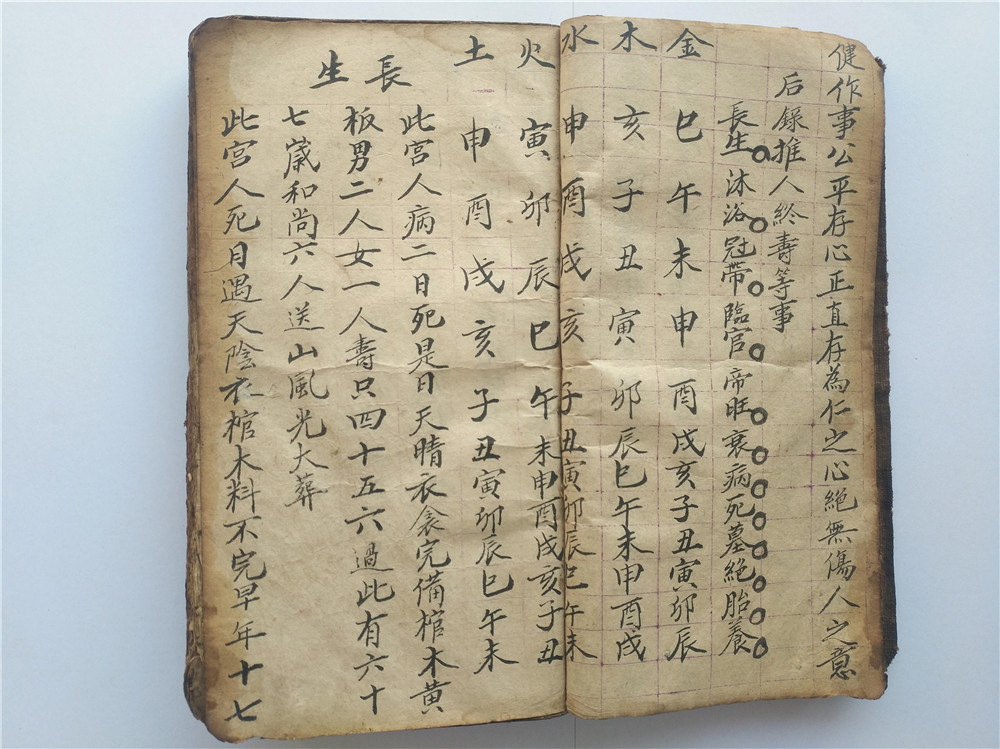 健作事公平存心正直存為仁之心絕無傷人之意
后錄推人終壽等事
長生沐浴冠帶臨官帝旺衰病死墓絕胎養
金巳午未申酉戌亥子丑寅卯辰
木亥子丑寅卯辰巳午未申酉戌
水申酉戌亥子丑寅卯辰巳午未
火寅卯辰巳午未申酉戌亥子丑
土申酉戌亥子丑寅卯辰巳午未
長生
此宮人病二日死是日天晴衣衾完備棺木黃
板男二人女一人壽只四十五六過此有六十
七歲和尚六人送山風光大葬
此宮人死月遇天陰衣棺木料不完早年十七